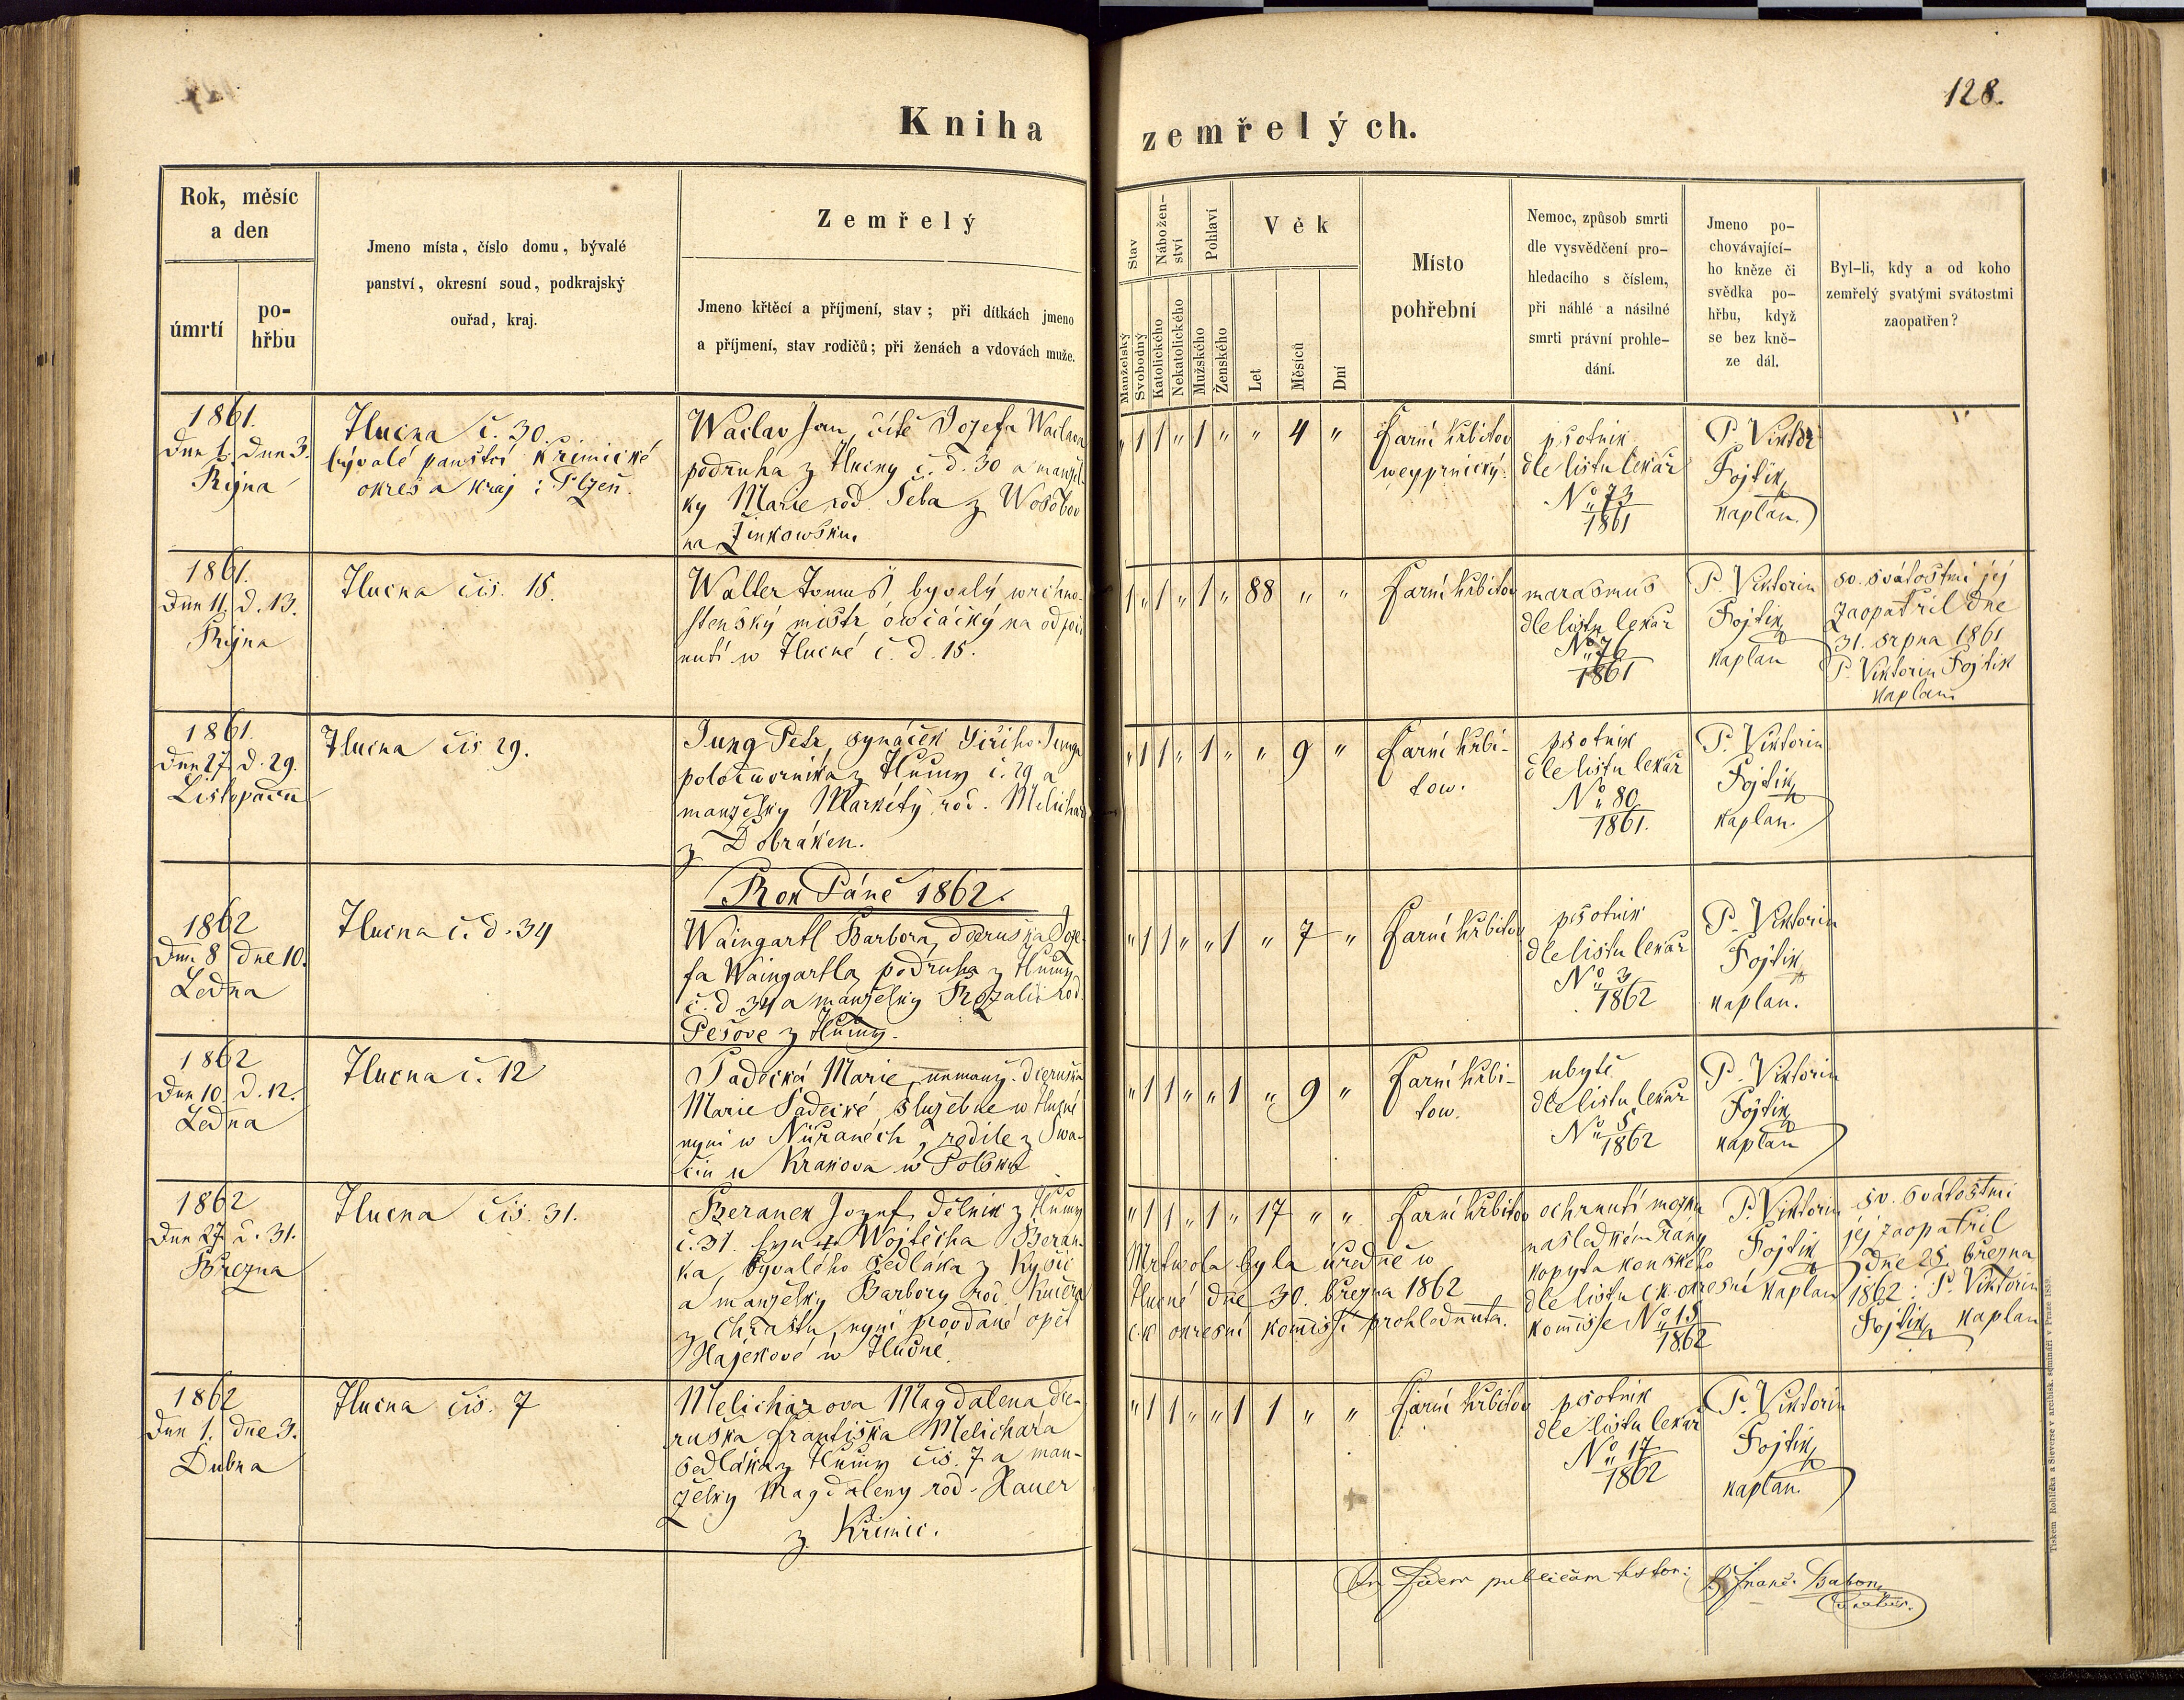 128.
Kniha zemřelých.
Rok, měsíc
a den
úmrtí
po-
hřbu
Jmeno místa, číslo domu, bývalé
panství, okresní soud, podkrajský
ouřad, kraj.
Zemřelý
Jmeno křtěcí a příjmení, stav; při dítkách jmeno
a příjmení, stav rodičů; při ženách a vdovách muže.
Stav
Manželský
Svobodný
Nábožen-
ství
Katolického
Nekatolického
Pohlaví
Mužského
Ženského
Věk
Let
Měsíců
Dní
Místo
pohřební
Nemoc, způsob smrti
dle vysvědčení pro-
hledacího s číslem,
při náhlé a násilné
smrti právní prohle-
dání.
Jmeno po-
chovávající-
ho kněze či
svědka po-
hřbu, když
se bez kně-
ze dál.
Byl-li, kdy a od koho
zemřelý svatými svátostmi
zaopatřen?
1861.
Dne 1. Dne 3.
Října
Tlucna č. 30.
bývalé panství Křimické
okres a kraj: Plzeň.
Waclav Jan, dítě Jozefa Waclava
podruha z Tlucny č. d. 30 a manžel-
ky Marie rod. Šeba z Wosobov
na Žinkowsku.
" 1 1 " 1 " " 4 "
Farní hřbitov
weyprnický.
psotník
dle listu lékař
No 73
1861
P. Viktor
Fojtík
kaplan.
1861.
Dne 11. d. 13.
Října
Tlucna čis. 15.
Walter Tomáš, byvalý wrchno-
stenský mistr owčácký na odpoči
nutí w Tlucné č. d. 15.
1 " 1 " 1 " 88 " "
Farní hřbitov
marasmus
dle listu lekař
No 76
1861
P. Viktorin
Fojtík
kaplan
sv. svátostmi jej
zaopatřil dne
31. srpna 1861
P. Viktorin Fojtík
kaplan
1861.
Dne 27. d. 29.
Listopadu
Tlucna čis 29.
Jung Petr, synáček Jiřího Junga
polodworníka z Tlucny č. 29 a
manželky Markéty, rod. Melichar
z Dobřaken.
" 1 1 " 1 " " 9 "
Farní hřbi-
tow.
psotník
dle listu lekař
No 80
1861.
P. Viktorin
Fojtík
kaplan.
Rok Páně 1862.
1862
Dne 8 dne 10.
Ledna
Tlucna č. d. 34
Waingartl Barbora, dceruška Joze-
fa Waingartla, podruha z Tlucny
č. d. 34 a manželky Rozalie rod.
Pešove z Tlucny.
" 1 1 " " 1 " 7 "
Farní hřbitov
psotník
dle listu lekař
No 3
1862
P. Viktorin
Fojtík
kaplan.
1862
Dne 10. d. 12.
Ledna
Tlucna č. 12
Sadecká Marie, nemanž. dceruška
Marie Sadecké, služebne w Tlucné
nyní w Nüřanech,
u Krakova w Polsku
" 1 1 " " 1 " 9 "
Farní hřbi-
tow.
ubytě
dle listu lekař
No 5
1862
P. Viktorin
Fojtík
kaplan
1862
Dne 27. d. 31.
Března
Tlucna čis. 31.
Beranek Jozef, dělník z Tlucny
č. 31. syn † Wojtěcha Beran-
ka, bývalého sedláka z Kyšic
a manželky Barbory rod. Kučera
z Chrástu, nyní provdané opět
Hájekové w Tlucné.
" 1 1 " 1 " 17 " "
Farní hřbitov
Mrtwola byla úředně w
Tlucné dne 30. března 1862
c. k. okresní kommissí prohlednuta.
ochrnutí mozku
následkem rány
kopyta koňského
dle listu c. k. okresní
komisse No 15
1862
P. Viktorin
Fojtík
kaplan
sv. svátostmi
jej zaopatřil
dne 28. března
1862: P. Viktorin
Fojtík kaplan
1862
Dne 1. dne 3.
Dubna
Tlucna čis. 7
Melicharova Magdalena dce-
ruška Františka Melichara
sedláka z Tlucny čis. 7 a man-
želky Magdaleny rod. Hauer
z Křimic.
" 1 1 " " 1 1 " "
Farní hřbitov
psotník
dle listu lekař
No 17
1862
P. Viktorin
Fojtík
kaplan.
In fidem publicam testor:
Tiskem Rohlíčka a Sieverse v arcibisk. semináři v Praze 1859.